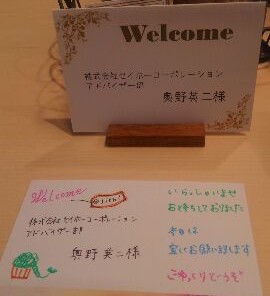 Welcome
株式会社セイホーコーポレーション
アドバイザー部
奥野英二様
Welcome
株式会社セイホーコーポレーション
アドバイザー部
奥野英二様
いらっしゃいませ
お待ちしておりました
本日は
宜しくお願い致します
ごゆっくりどうぞ